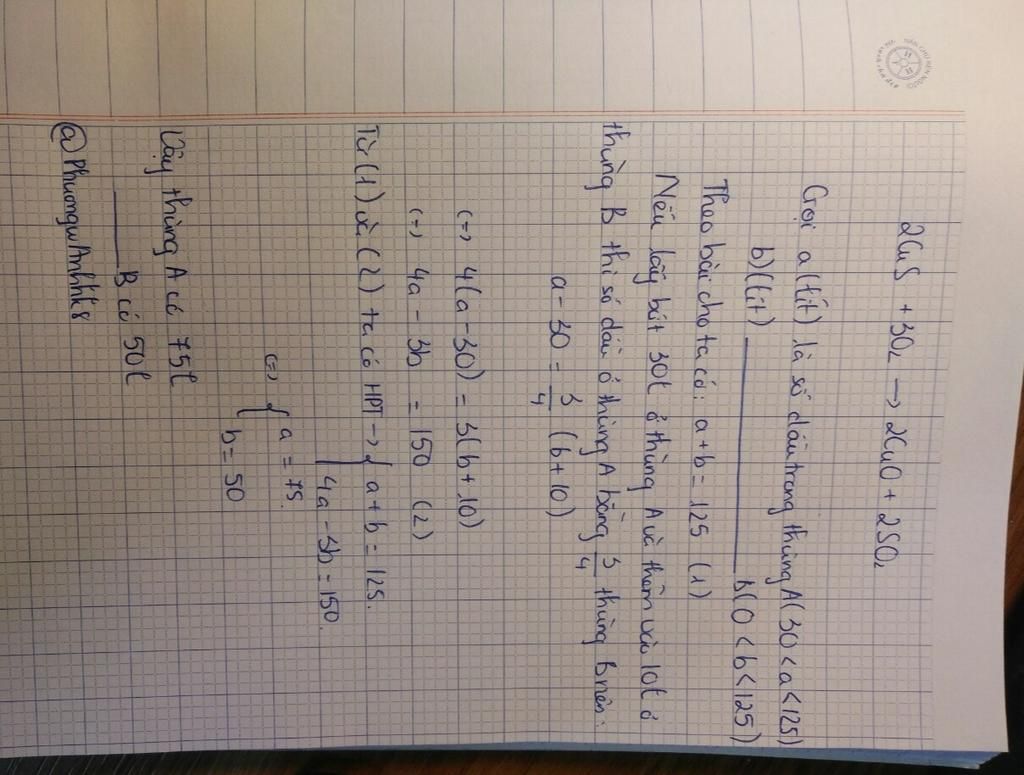 2CuS + 3O₂ → 2CuO + 2SO₂
Gọi a (lít) là số dầu trong thùng A (30 < a < 125)
b)(lít) ________ B (0 < b < 125)
Theo bài cho ta có: a + b = 125 (1)
Nếu lấy bớt 30l ở thùng A và thêm vào 10l ở
thùng B thì số dầu ở thùng A bằng 3/4 thùng B nên:
a - 30 = 3/4 (b + 10)
(=) 4(a - 30) = 3(b + 10)
(=) 4a - 3b = 150 (2)
Từ (1) và (2) ta có HPT → { a + b = 125.
4a - 3b = 150.
(=) { a = 75.
b = 50
Vậy thùng A có 75l
____ B có 50l
@PhuonguAnhhk8